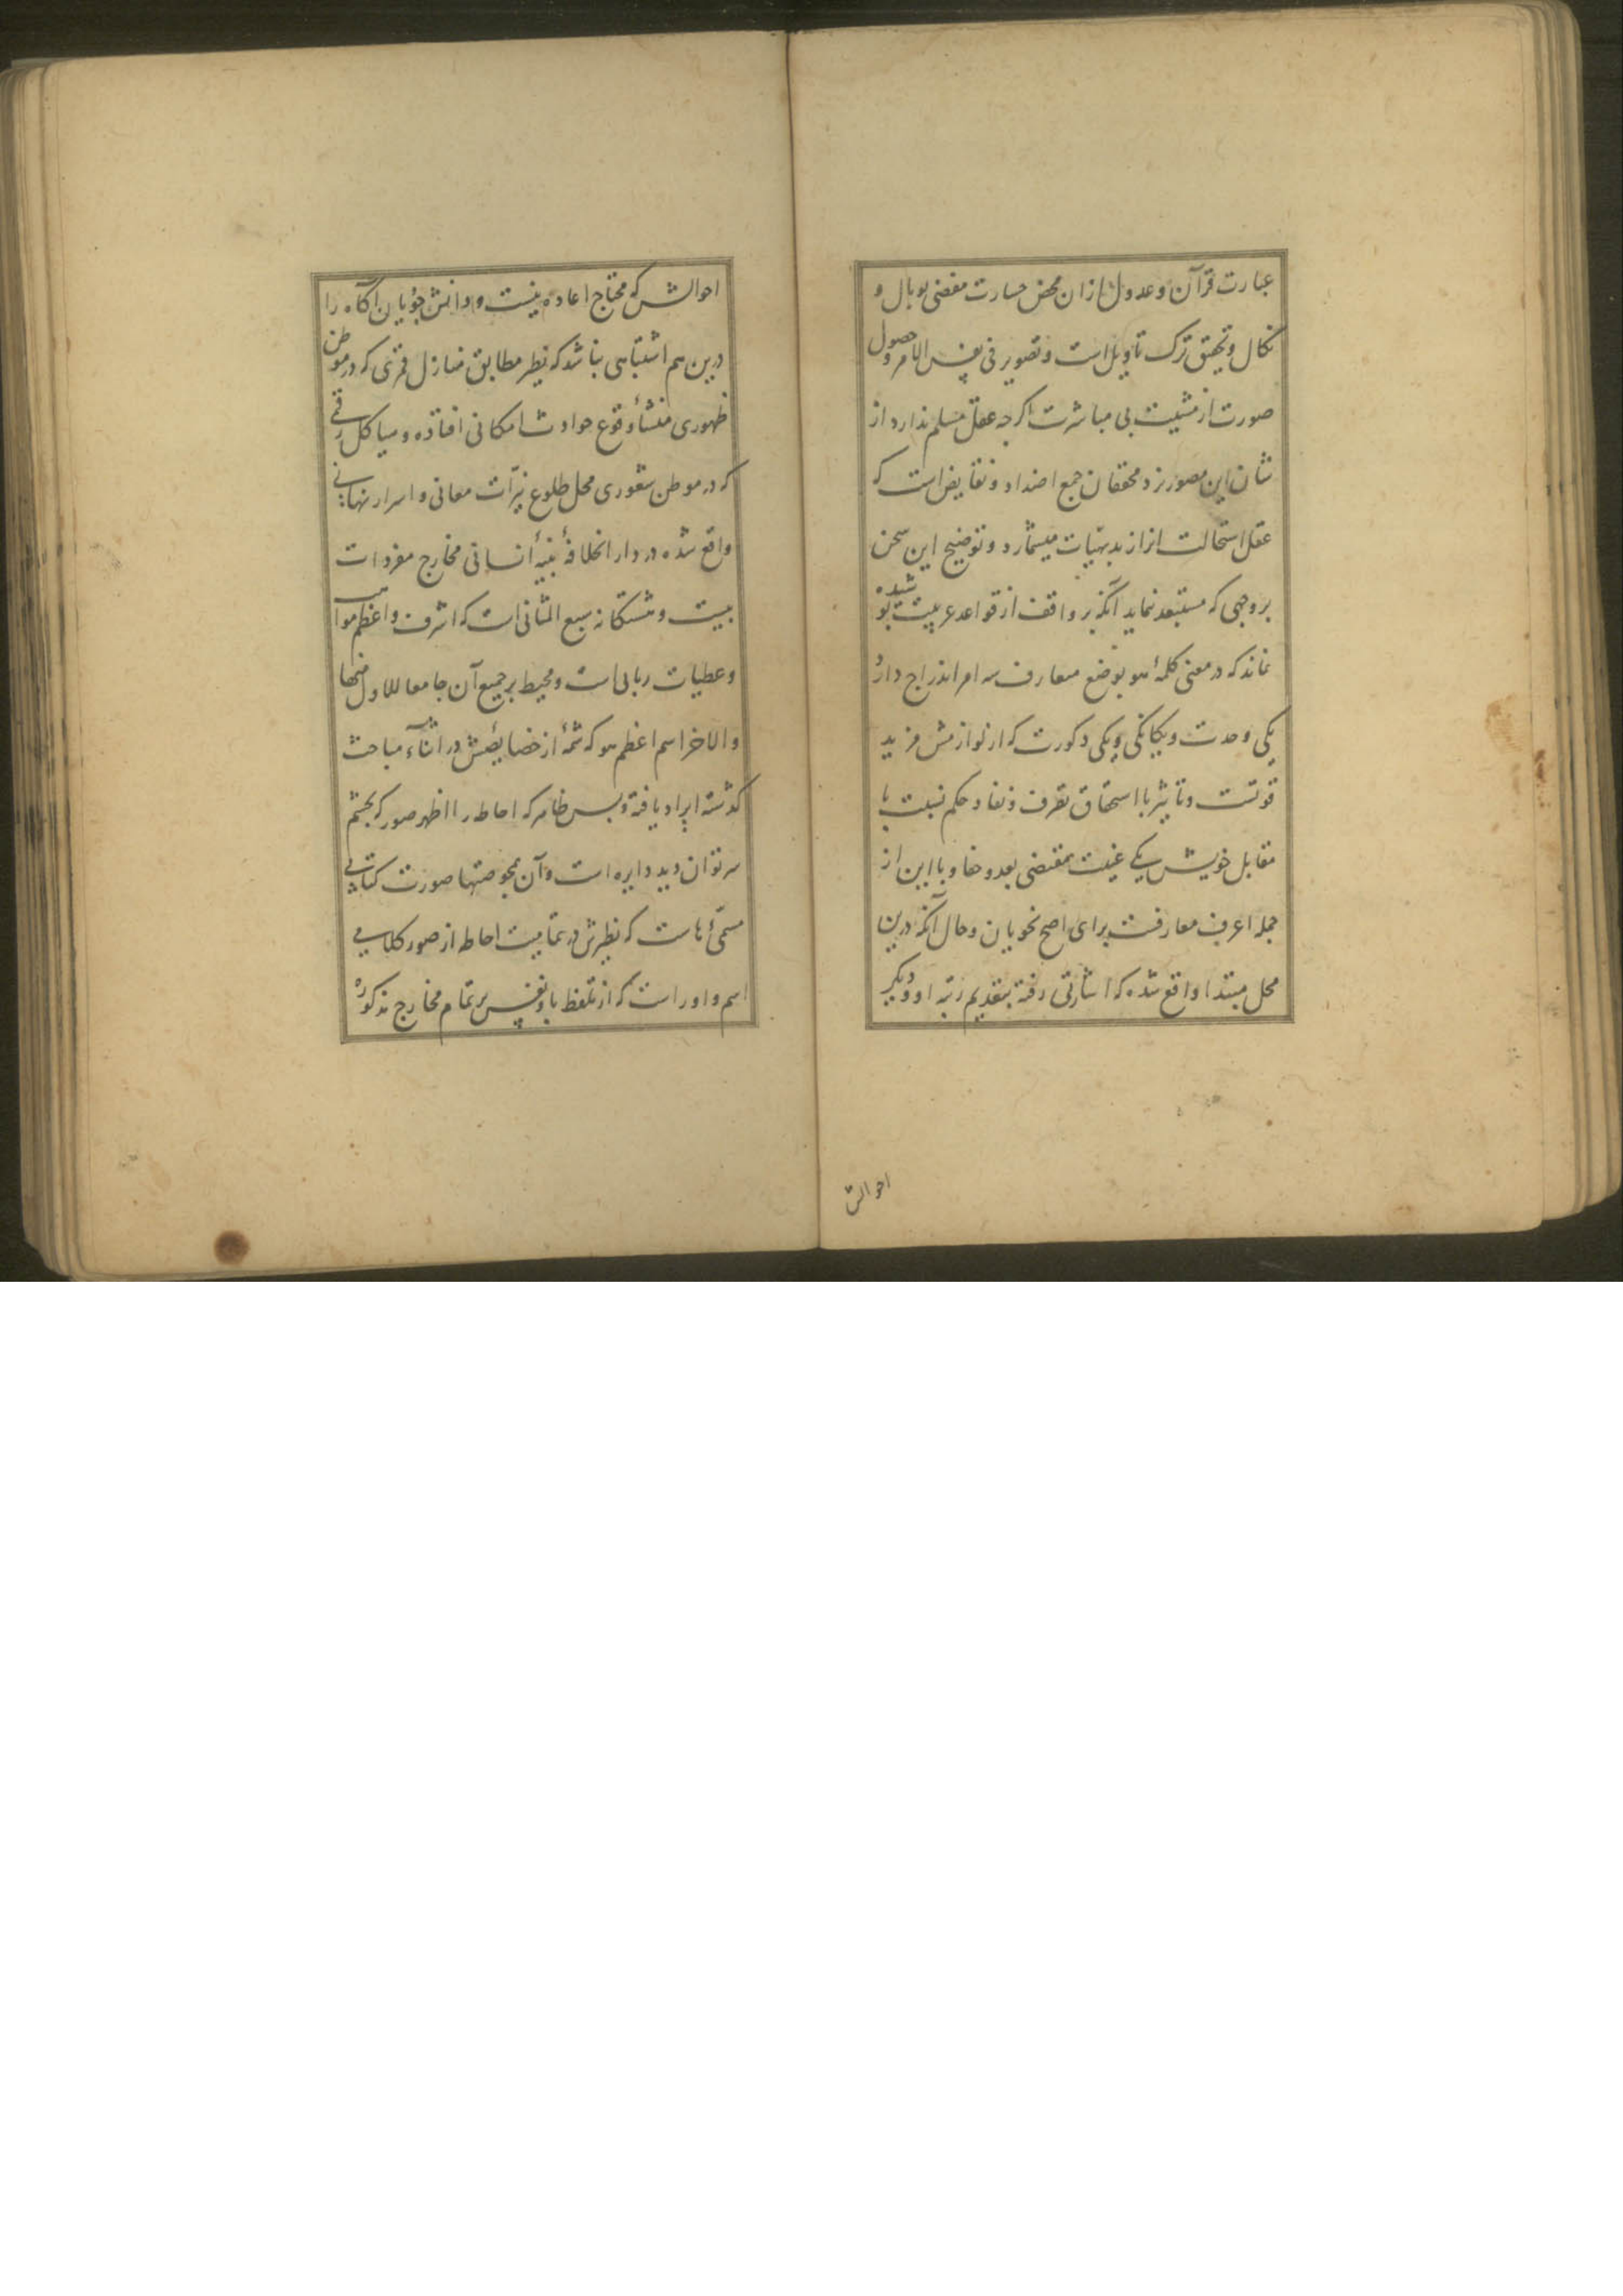 عبارت قرآن وعدول ازان محض جسارت مفضی بوبال و
نکال وتحقیق ترک تاویل است و تصویر فی نفس الامر وحصول
صورت از مشیت بی مباشرت اکرچه عقل مسلم ندارد از
شان این مصور نزد محققان جمع اضداد و نقایض است که
عقل استحالت انرا از بدیهیات میشمارد و توضیح این سخن
بر وجهی که مستبعد نماید آنکه بر واقف از قواعد عربیت پوشیده
نماند که در معنی کلمهٔ هو بوضع معارف سه امر اندراج دارد
یکی وحدت ویکانکی ویکی ذکورت که از لوازمش مزید
قوتست وتاثیر با استحقاق تصرف و نفاد حکم نسبت با
مقابل خویش یکی غیبت مقتضی بعد وخفا وبا این از
جمله اعرف معارفست برای اصح نحویان وحال آنکه درین
محل مبتدا واقع شده که اشارتی رفته بتقدیم رتبه او ودیکر
احوالش
احوالش که محتاج اعاده نیست ودانش جویان آکاه را
درین هم اشتباهی نباشد که نظیر مطابق منازل قمری که در موطن
ظهوری منشأ وقوع حوادث امکانی افتاده وهیاکل رقمی
که در موطن شعوری محل طلوع نیّرات معانی واسرار نهانی
واقع شده در دار الخلافهٔ بنیهٔ انسانی مخارج مفردات
بیست و هشتکانه سبع المثانی است که اشرف واعظم مواهب
وعطیات ربانی است ومحیط بر جمیع آن جامعا للاول منها
والاخر اسم اعظم هو که شمهٔ از خصایصش در اثنآء مباحث
کذشته ایراد یافته وبس ظاهر که احاطه را اظهر صور که بچشم
سر توان دید دایره است وآن بخصوصتها صورت کتابی
مسمّیٔ هاست که نظیرش در تمامیت احاطه از صور کلامی
اسم واو راست که از تلفظ باو نفس بر تمام مخارج مذکوره